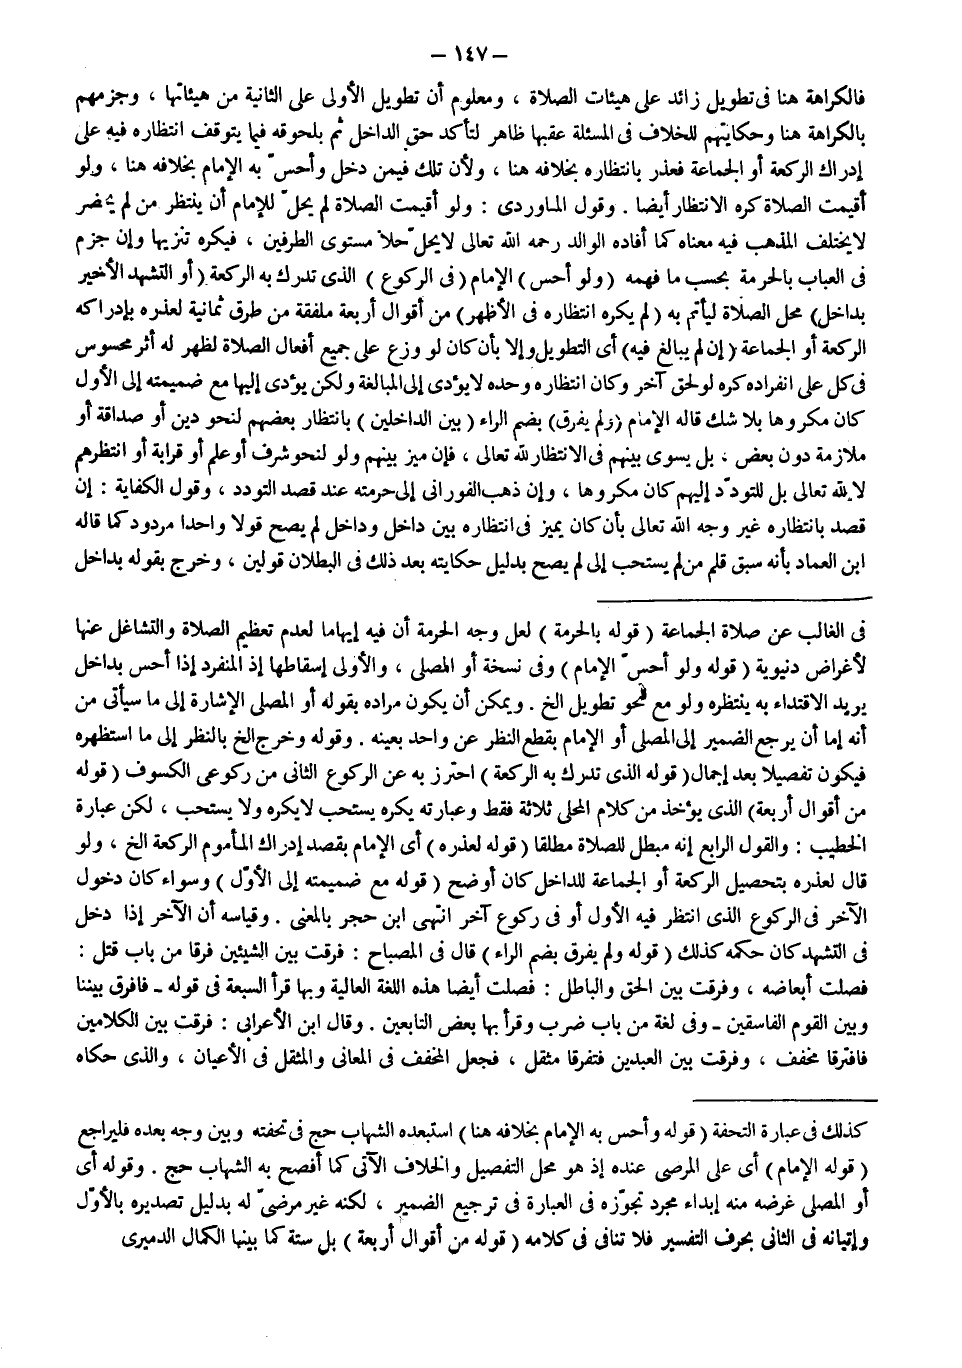 – ١٤٧ –
فالكراهة هنا فى تطويل زائد على هيئات الصلاة ، ومعلوم أن تطويل الأولى على الثانية من هيئاتها ، وجزمهم
بالكراهة هنا وحكايتهم للخلاف فى المسئلة عقبها ظاهر لتأكد حق الداخل ثم بلحوقه فيما يتوقف انتظاره فيه على
إدراك الركعة أو الجماعة فعذر بانتظاره بخلافه هنا ، ولأن تلك فيمن دخل وأحسّ به الإمام بخلافه هنا ، ولو
أقيمت الصلاة كره الانتظار أيضا . وقول الماوردى : ولو أقيمت الصلاة لم يحلّ للإمام أن ينتظر من لم يحضر
لايختلف المذهب فيه معناه كما أفاده الوالد رحمه الله تعالى لايحلّ حلا مستوى الطرفين ، فيكره تنزيها وإن جزم
فى العباب بالحرمة بحسب ما فهمه ( ولو أحس ) الإمام ( فى الركوع ) الذى تدرك به الركعة ( أو التشهد الأخير
بداخل ) محل الصلاة ليأتم به ( لم يكره انتظاره فى الأظهر ) من أقوال أربعة ملفقة من طرق ثمانية لعذره بإدراكه
الركعة أو الجماعة ( إن لم يبالغ فيه ) أى التطويل وإلا بأن كان لو وزع على جميع أفعال الصلاة لظهر له أثر محسوس
فى كل على انفراده كره لو لحق آخر وكان انتظاره وحده لايؤدى إلى المبالغة ولكن يؤدى إليها مع ضميمته إلى الأول
كان مكروها بلا شك قاله الإمام ( ولم يفرق ) بضم الراء ( بين الداخلين ) بانتظار بعضهم لنحو دين أو صداقة أو
ملازمة دون بعض ، بل يسوى بينهم فى الانتظار لله تعالى ، فإن ميز بينهم ولو لنحو شرف أو علم أو قرابة أو انتظرهم
لا لله تعالى بل للتودّد إليهم كان مكروها ، وإن ذهب الفورانى إلى حرمته عند قصد التودد ، وقول الكفاية : إن
قصد بانتظاره غير وجه الله تعالى بأن كان يميز فى انتظاره بين داخل وداخل لم يصح قولا واحدا مردود كما قاله
ابن العماد بأنه سبق قلم من لم يستحب إلى لم يصح بدليل حكايته بعد ذلك فى البطلان قولين ، وخرج بقوله بداخل
فى الغالب عن صلاة الجماعة ( قوله بالحرمة ) لعل وجه الحرمة أن فيه إيهاما لعدم تعظيم الصلاة والتشاغل عنها
لأغراض دنيوية ( قوله ولو أحسّ الإمام ) وفى نسخة أو المصلى ، والأولى إسقاطها إذ المنفرد إذا أحس بداخل
يريد الاقتداء به ينتظره ولو مع نحو تطويل الخ . ويمكن أن يكون مراده بقوله أو المصلى الإشارة إلى ما سيأتى من
أنه إما أن يرجع الضمير إلى المصلى أو الإمام بقطع النظر عن واحد بعينه . وقوله وخرج الخ بالنظر إلى ما استظهره
فيكون تفصيلا بعد إجمال ( قوله الذى تدرك به الركعة ) احترز به عن الركوع الثانى من ركوعى الكسوف ( قوله
من أقوال أربعة ) الذى يؤخذ من كلام المحلى ثلاثة فقط وعبارته يكره يستحب لايكره ولا يستحب ، لكن عبارة
الخطيب : والقول الرابع إنه مبطل للصلاة مطلقا ( قوله لعذره ) أى الإمام بقصد إدراك المأموم الركعة الخ ، ولو
قال لعذره بتحصيل الركعة أو الجماعة للداخل كان أوضح ( قوله مع ضميمته إلى الأوّل ) وسواء كان دخول
الآخر فى الركوع الذى انتظر فيه الأول أو فى ركوع آخر انتهى ابن حجر بالمعنى . وقياسه أن الآخر إذا دخل
فى التشهد كان حكمه كذلك ( قوله ولم يفرق بضم الراء ) قال فى المصباح : فرقت بين الشيئين فرقا من باب قتل :
فصلت أبعاضه ، وفرقت بين الحق والباطل : فصلت أيضا هذه اللغة العالية وبها قرأ السبعة فى قوله ـ فافرق بيننا
وبين القوم الفاسقين ـ وفى لغة من باب ضرب وقرأ بها بعض التابعين . وقال ابن الأعرابى : فرقت بين الكلامين
فافترقا مخفف ، وفرقت بين العبدين فتفرقا مثقل ، فجعل المخفف فى المعانى والمثقل فى الأعيان ، والذى حكاه
كذلك فى عبارة التحفة ( قوله وأحس به الإمام بخلافه هنا ) استبعده الشهاب حج فى تحفته وبين وجه بعده فليراجع
( قوله الإمام ) أى على المرضى عنده إذ هو محل التفصيل والخلاف الآتى كما أفصح به الشهاب حج . وقوله أى
أو المصلى غرضه منه إبداء مجرد تجوّزه فى العبارة فى ترجيع الضمير ، لكنه غير مرضىّ له بدليل تصديره بالأوّل
وإتيانه فى الثانى بحرف التفسير فلا تنافى فى كلامه ( قوله من أقوال أربعة ) بل ستة كما بينها الكمال الدميرى